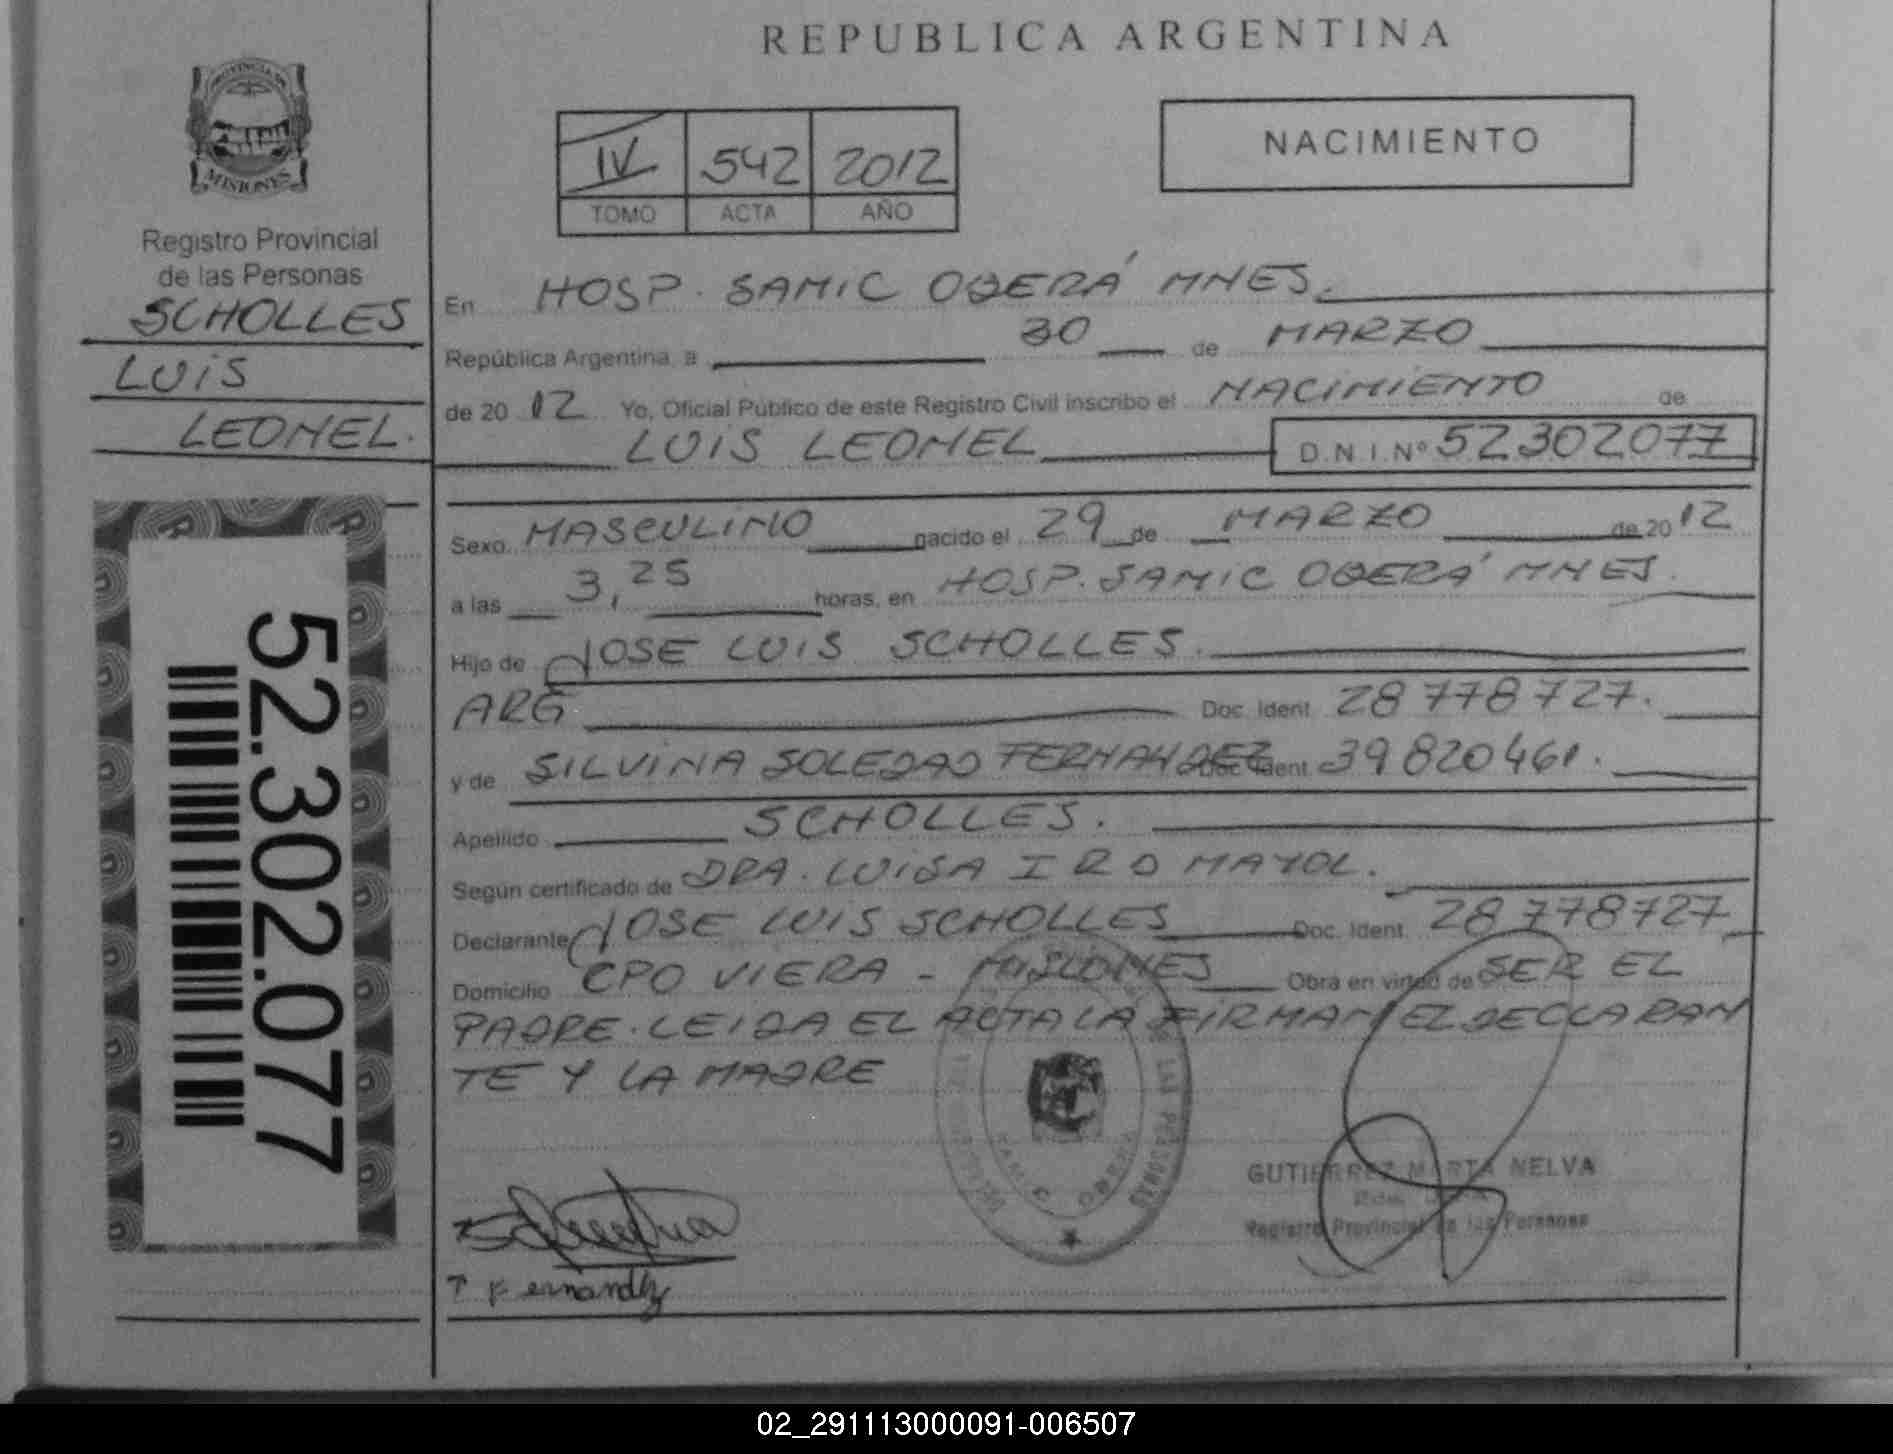 REPUBLICA ARGENTINA
PROVINCIA DE
MISIONES
Registro Provincial
de las Personas
SCHOLLES
LUIS
LEONEL.
52.302.077
IV 542 2012
TOMO ACTA AÑO
NACIMIENTO
En HOSP. SAMIC OBERÁ MNES.
República Argentina, a 30 de MARZO
de 2012 Yo, Oficial Público de este Registro Civil inscribo el NACIMIENTO de
LUIS LEONEL D.N.I.Nº 52302077
Sexo MASCULINO nacido el 29 de MARZO de 2012
a las 3,25 horas, en HOSP. SAMIC OBERÁ MNES.
Hijo de JOSE LUIS SCHOLLES.
ARG Doc. Ident. 28 778 727.
y de SILVINA SOLEDAD FERNANDEZ Doc. Ident. 39 820 461.
Apellido SCHOLLES.
Según certificado de DRA. LUISA IRO MAYOL.
Declarante JOSE LUIS SCHOLLES Doc. Ident. 28 778727
Domicilio CPO VIERA - MISIONES Obra en virtud de SER EL
PADRE. LEIDA EL ACTA LA FIRMAN EL DECLARAN
TE Y LA MADRE
LAS PERSONAS
SAMIC OBERA
GUTIERREZ MARTA NELVA
Registro Provincial de las Personas
Fernandez
02_291113000091-006507